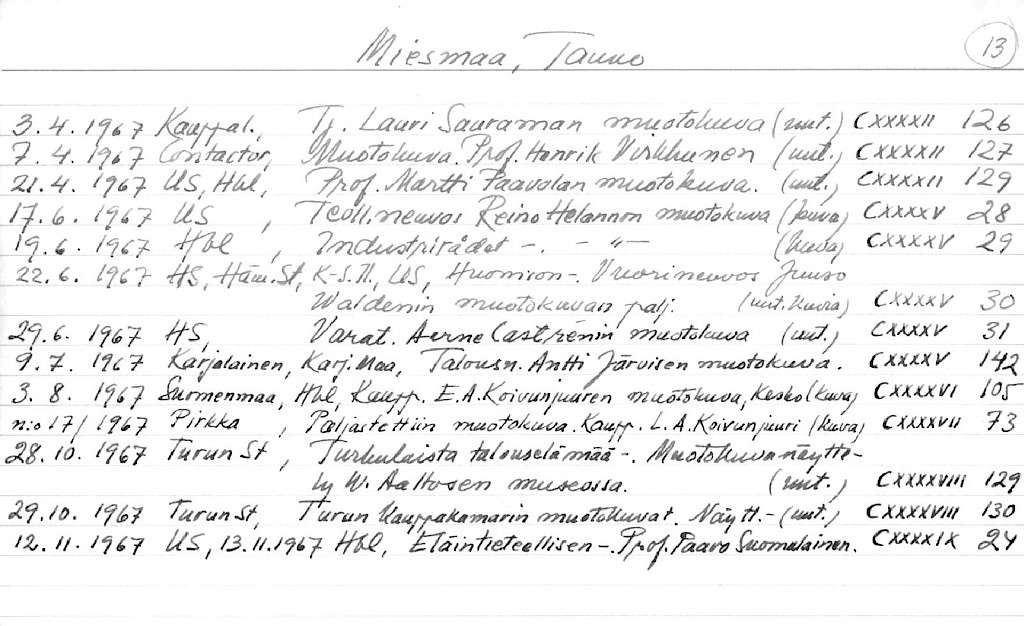 Miesmaa, Tauno 13
3.4.1967 Kauppal., Tj. Lauri Sauraman muotokuva (mt.) CXXXXII 126
7.4.1967 Contactor, Muotokuva. Prof. Henrik Virkkunen (mt.) CXXXXII 127
21.4.1967 US, Hbl, Prof. Martti Paavolan muotokuva. (mt.) CXXXXII 129
17.6.1967 US , Teoll.neuvos Reino Helannon muotokuva (kuva) CXXXXV 28
19.6.1967 Hbl , Industrirådet -. - " - (kuva) CXXXXV 29
22.6.1967 HS, Häm.St, K-S.Tl, US, Huomion-. Vuorineuvos Juuso
Waldenin muotokuvan palj. (mt. kuvia) CXXXXV 30
29.6.1967 HS, Varat. Aerne Castrénin muotokuva (mt.) CXXXXV 31
9.7.1967 Karjalainen, Karj.Maa, Talousn. Antti Järvisen muotokuva. CXXXXV 142
3.8.1967 Suomenmaa, Hbl, Kaupp. E.A. Koivunjuuren muotokuva, Kesko (kuva) CXXXXVI 105
n:o 17/1967 Pirkka , Paljastettiin muotokuva. Kaupp. L.A. Koivunjuuri (kuva) CXXXXVII 73
28.10.1967 Turun St , Turkulaista talouselämää -. Muotokuvanäytte-
ly W. Aaltosen museossa. (mt.) CXXXXVIII 129
29.10.1967 Turun St, Turun Kauppakamarin muotokuvat. Näytt.- (mt.) CXXXXVIII 130
12.11.1967 US, 13.11.1967 Hbl, Eläintieteellisen -. Prof. Paavo Suomalainen. CXXXXIX 24